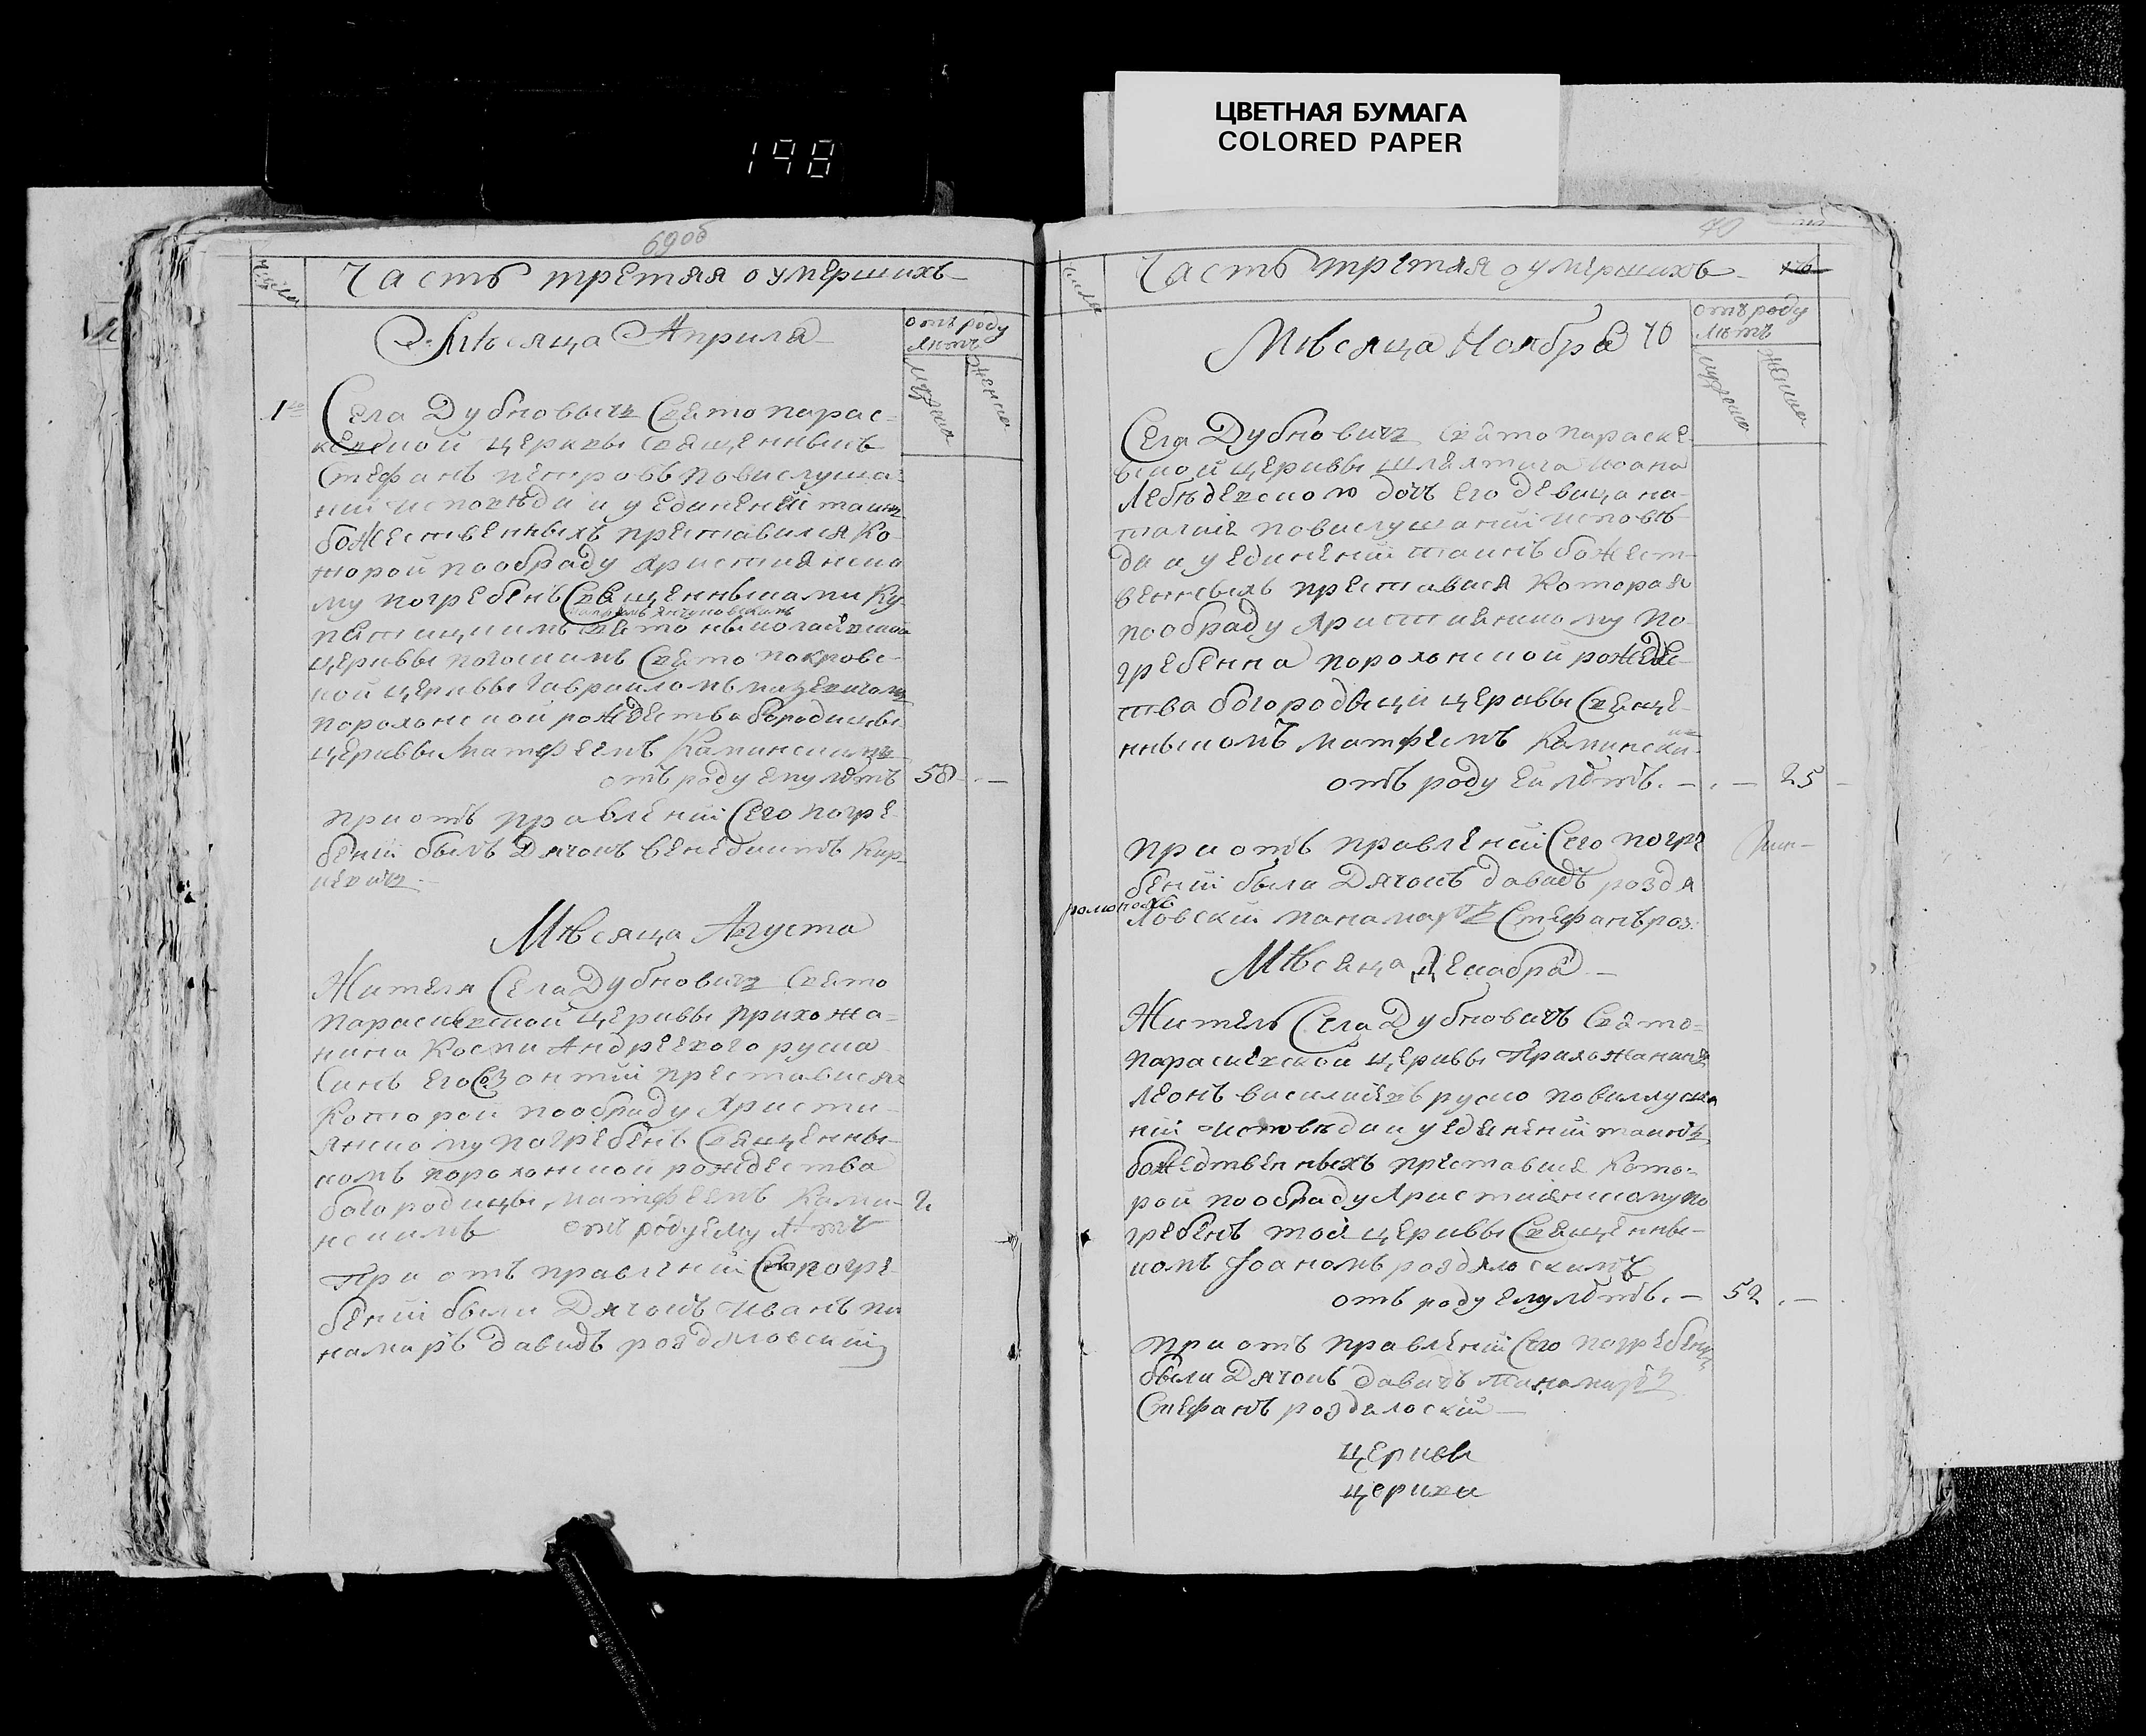 ЦВЕТНАЯ БУМАГА
COLORED PAPER
198
69об
Числа
Часть третяя о умершихъ
отъ роду
лѣтъ
мужеска
женска
Мѣсяца Априля
1го
Села Дубновичъ Свято парас-
кевской церквы Священныкъ
Стефанъ петровъ повислуша-
нии исповѣди и уединений таинъ
божественныхъ преставился Ко-
торой пообряду християнско
му погребенъ Священныками Ку-
церквы погоскимъ Свято покровс-
кой церквы Гавраиломъ
порохонской рождества богородицы
церквы Матфеемъ Каминскимъ
отъ роду ему лѣтъ 58
при отъ правлений Сего погре
бений былъ Дячокъ Венедиктъ Кар-
Мѣсяца Августа
Жителя Села Дубновичъ Свято
параскевской церквы прихожа-
нина Косми Андреевого руска
Синъ его Созонтий преставися
Которой пообряду Христи-
янскому погребенъ Священны-
комъ порохонской рождества
богородицы Матфеемъ Ками- 2
нскимъ отъ роду ему лѣтъ
При отъ правлений Сего погре
бений были Дячокъ Иванъ по
намаръ давидъ роздяловский
70
Числа
Часть третяя о умершихъ
отъ роду
лѣтъ
мужеска
женска
Мѣсяца Ноября 70
Села Дубновичъ Свято параске
вской церквы шляхтича Иоана
Лебѣдевского дочъ его девица на-
талия повислушаний исповѣ
ди и уединений таинъ божест-
венныхъ преставися Которая
пообряду Християнскому по
гребенна порохонской рождес-
тва богородыци церквы Свяще-
нныкомъ матфеемъ Камински
отъ роду ей лѣтъ. 25
при отъ правлений Сего погре
бений были Дячокъ давидъ роздя
ловский панамаръ Стефанъ роз-
Мѣсяца Декабря
Житель Села Дубновичъ Свято-
параскевской церквы Прихожанинъ
Леонъ василиевъ руско повислуша
ний исповѣди и уединений таинъ
божественныхъ преставися Кото-
рой пообряду Християнскому по
гребенъ тоя церквы Священны-
комъ Иоаномъ роздялоскимъ
отъ роду ему лѣтъ. 52
при отъ правлений Сего погребений
были Дячокъ давидъ панамаръ
Стефанъ роздялоский
церкви
церкви